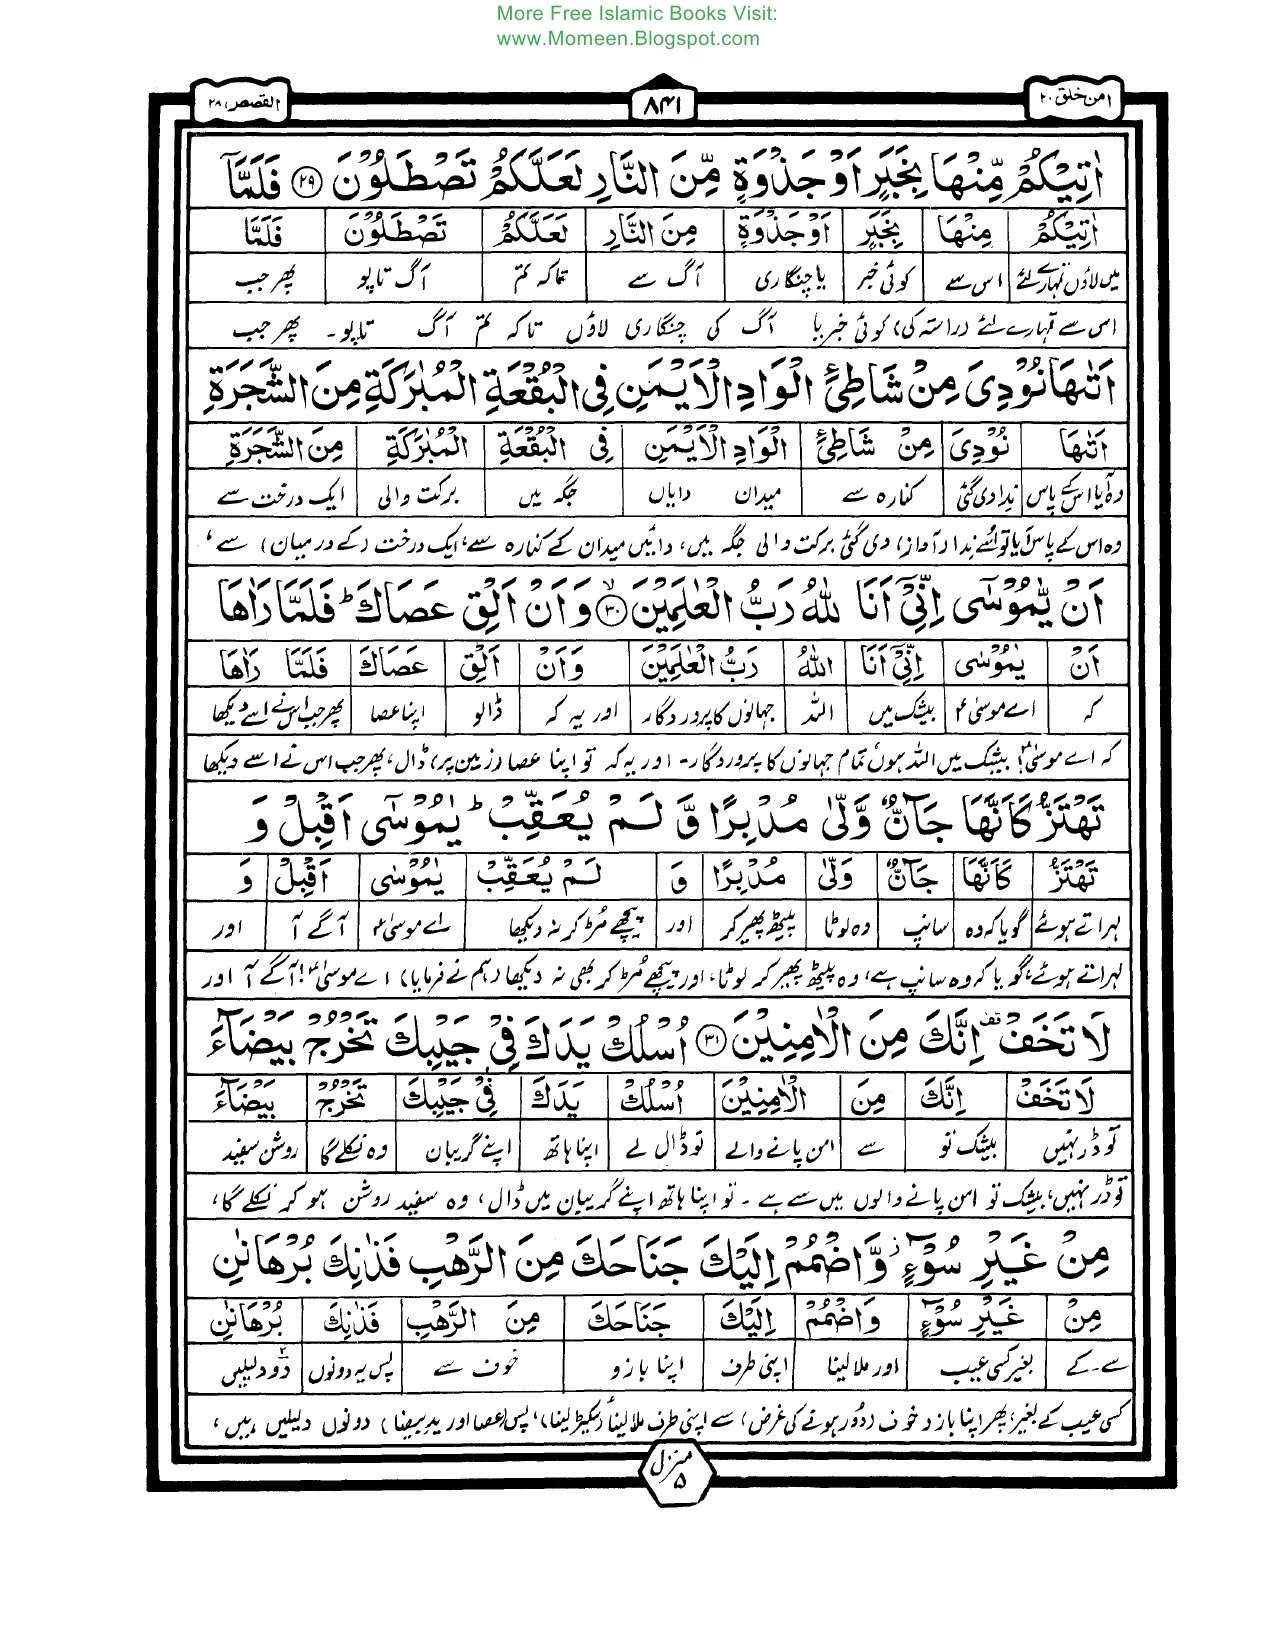 More Free Islamic Books Visit:
www.Momeen.Blogspot.com
امن خلق ۲۰
۸۴۱
القصص ۲۸
اٰتِيْكُمْ مِّنْهَا بِخَبَرٍ اَوْ جَذْوَةٍ مِّنَ النَّارِ لَعَلَّكُمْ تَصْطَلُوْنَ ﴿۲۹﴾ فَلَمَّاۤ
اٰتِيْكُمْ مِنْهَا بِخَبَرٍ اَوْ جَذْوَةٍ مِنَ النَّارِ لَعَلَّكُمْ تَصْطَلُوْنَ فَلَمَّا
میں لاؤں تمہارے لئے اس سے کوئی خبر یا چنگاری آگ سے تاکہ تم آگ تاپو پھر جب
اس سے تمہارے لئے (راستہ کی) کوئی خبر یا آگ کی چنگاری لاؤں تاکہ تم آگ تاپو۔ پھر جب
اَتٰىهَا نُوْدِیَ مِنْ شَاطِئِ الْوَادِ الْاَيْمَنِ فِی الْبُقْعَةِ الْمُبٰرَكَةِ مِنَ الشَّجَرَةِ
اَتٰىهَا نُوْدِیَ مِنْ شَاطِئِ الْوَادِ الْاَيْمَنِ فِی الْبُقْعَةِ الْمُبٰرَكَةِ مِنَ الشَّجَرَةِ
وہ آیا اس کے پاس ندا دی گئی کنارہ سے میدان دایاں جگہ میں برکت والی ایک درخت سے
وہ اس کے پاس آیا تو اسے ندا (آواز) دی گئی برکت والی جگہ میں، دائیں میدان کے کنارہ سے، ایک درخت (کے درمیان) سے،
اَنْ يّٰمُوْسٰۤی اِنِّیْۤ اَنَا اللّٰهُ رَبُّ الْعٰلَمِيْنَ ﴿۳۰﴾ وَ اَنْ اَلْقِ عَصَاكَ ؕ فَلَمَّا رَاٰهَا
اَنْ يٰمُوْسٰۤی اِنِّیْۤ اَنَا اللّٰهُ رَبُّ الْعٰلَمِيْنَ وَاَنْ اَلْقِ عَصَاكَ فَلَمَّا رَاٰهَا
کہ اے موسٰیؑ بیشک میں اللہ جہانوں کا پروردگار اور یہ کہ ڈالو اپنا عصا پھر جب اس نے اسے دیکھا
کہ اے موسٰیؑ! بیشک میں اللہ ہوں تمام جہانوں کا پروردگار۔ اور یہ کہ تو اپنا عصا (زمین پر) ڈال، پھر جب اس نے اسے دیکھا
تَهْتَزُّ كَاَنَّهَا جَآنٌّ وَّلّٰی مُدْبِرًا وَّ لَمْ يُعَقِّبْ ؕ يٰمُوْسٰۤی اَقْبِلْ وَ
تَهْتَزُّ كَاَنَّهَا جَآنٌّ وَلّٰی مُدْبِرًا وَّ لَمْ يُعَقِّبْ يٰمُوْسٰۤی اَقْبِلْ وَ
لہراتے ہوئے گویا کہ وہ سانپ وہ لوٹا پیٹھ پھیر کر اور پیچھے مُڑ کر نہ دیکھا اے موسٰیؑ آگے آ اور
لہراتے ہوئے، گویا کہ وہ سانپ ہے، وہ پیٹھ پھیر کر لوٹا، اور پیچھے مُڑ کر بھی نہ دیکھا (ہم نے فرمایا) اے موسٰیؑ! آگے آ اور
لَا تَخَفْ ۫ اِنَّكَ مِنَ الْاٰمِنِيْنَ ﴿۳۱﴾ اُسْلُكْ يَدَكَ فِیْ جَيْبِكَ تَخْرُجْ بَيْضَآءَ
لَا تَخَفْ اِنَّكَ مِنَ الْاٰمِنِيْنَ اُسْلُكْ يَدَكَ فِیْ جَيْبِكَ تَخْرُجْ بَيْضَآءَ
تو ڈر نہیں بیشک تو سے امن پانے والے تو ڈال لے اپنا ہاتھ اپنے گریبان وہ نکلے گا روشن سفید
تو ڈر نہیں، بیشک تو امن پانے والوں میں سے ہے۔ تو اپنا ہاتھ اپنے گریبان میں ڈال، وہ سفید روشن ہو کر نکلے گا،
مِنْ غَيْرِ سُوْٓءٍ ؗ وَّ اضْمُمْ اِلَيْكَ جَنَاحَكَ مِنَ الرَّهْبِ فَذٰنِكَ بُرْهَانٰنِ
مِنْ غَيْرِ سُوْٓءٍ وَاضْمُمْ اِلَيْكَ جَنَاحَكَ مِنَ الرَّهْبِ فَذٰنِكَ بُرْهَانٰنِ
سے۔ کے بغیر کسی عیب اور ملا لینا اپنی طرف اپنا بازو خوف سے پس یہ دونوں دو دلیلیں
کسی عیب کے بغیر، پھر اپنا بازو خوف (دور ہونے کی غرض) سے اپنی طرف ملا لینا (سکیڑ لینا)، پس (عصا اور یدِ بیضا) دونوں دلیلیں ہیں،
منزل ۵